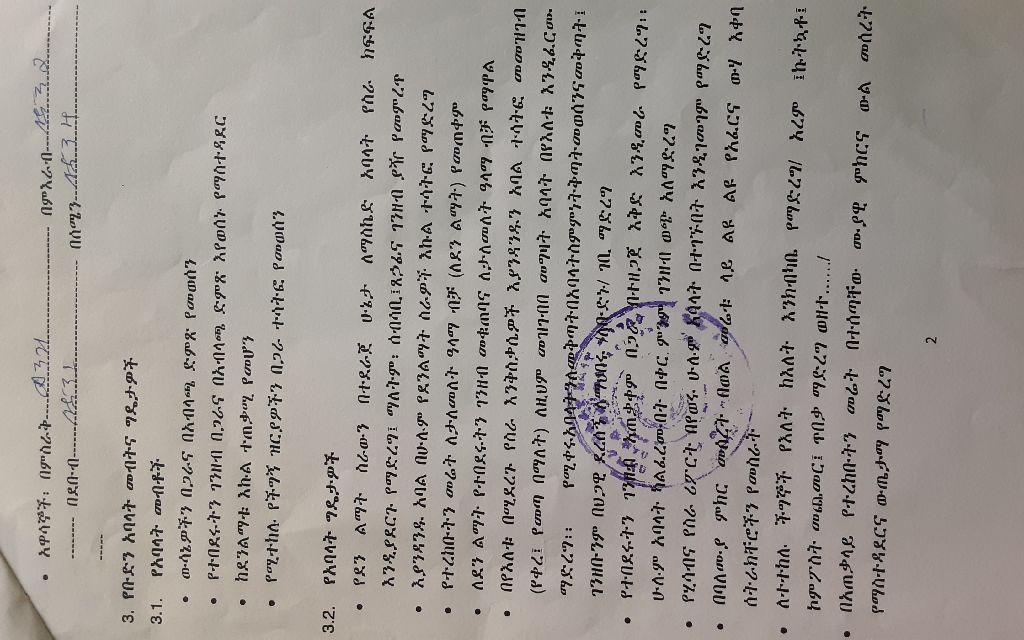 • አዋሳኞች፡ በምስራቅ በምእራብ
በደቡብ በሰሜን
3. የቡድን አባላት መብትና ግዴታዎች
3.1. የአባላት መብቶች
• ውሳኔዎችን በጋራና በአብላጫ ድምጽ የመወሰን
• የተበደሩትን ገንዘብ በጋራና በአብላጫ ድምጽ እየወሰኑ የማስተዳደር
• ከደንልማቱ እኩል ተጠቃሚ የመሆን
• የሚተከሉ የችግኝ ዝርያዎችን በጋራ ተሳትፎ የመወሰን
3.2. የአባላት ግዴታዎች
• የደን ልማት ስራውን በተደራጀ ሁኔታ ለማስኬድ አባላት የስራ ክፍፍል
እንዲያደርጉ የማድረግ፤ ማለትም፡ ሰብሳቢ፤ጸኃፊና ገንዘብ ያዥ የመምረጥ
• እያንዳንዱ አባል በሁሉም የደንልማት ስራዎች እኩል ተሳትፎ የማድረግ
• የተረከቡትን መሬት ለታለመለት ዓላማ ብቻ (ለደን ልማት) የመጠቀም
• ለደን ልማት የተበደሩትን ገንዘብ መቁጠብና ለታለመለት ዓላማ ብቻ የማዋል
• በየእለቱ በሚደረጉ የስራ እንቅስቃሴዎች እያንዳንዱን አባል ተሳትፎ መመዝገብ
(የቀረ፤ የመጣ በማለት) ለዚህም መዝገብበ መግዛት አባላት በየእለቱ እንዲፈርሙ
ማድረግ፡፡
ገንዘቡንም በጋዋ ማድረግ
• የተበደሩትን ገንዘብ በጋራ በተዘጋጀ እቅድ እንዲመራ የማድረግ፡፡
ሁሉም አባላት ካልፈረሙበት በቀር ምንም ገንዘብ ወጭ አለማድረግ
• የሂሳብና የስራ ሪፖርት በየወሩ ሁሉም አባላት በተገኙበት እንዲገመገም የማድረግ
• በባለሙያ ምክር መሰረት በወል መሬቱ ላይ ልዩ ልዩ የአፈርና ውሃ እቀባ
ስትራክቸሮችን የመስራት
• ለተተከሉ ችግኞች የእለት ከእለት እንክብካቤ የማድረግ/ አረም ፤ኩትኳቶ፤
ኮምፖስት መጨመር፤ ጥበቃ ማድረግ ወዘተ……/
• በአጠቃላይ የተረከቡትን መሬት በተሰጣቸው ሙያዊ ምክርና ውል መሰረት
የማስተዳደርና ውጤታማ የማድረግ
2